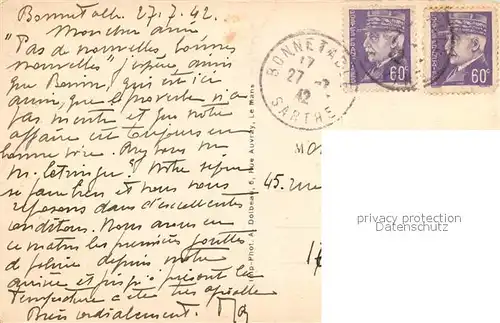 Bonnetable. 27.7.42.
Mon cher ami
"Pas de nouvelles, bonnes
nouvelles" j'espère ainsi
que Bonne, qui est ici
aussi, que le proverbe n'a
pas menti et que notre
affaire est toujours en
bonne voie.
Notre séjour
se fait bien et nous nous
reposons dans d'excellentes
conditions. Nous avons eu
ce matin les premières gouttes
de pluie depuis notre
arrivée et jusqu'à présent la
température a été très agréable
Bien cordialement.
BONNETABLE
17
27 -7
42
SARTHE
60c
60c
Imp.-Phot. A. Dolbeau, 6, Rue Auvray, Le Mans
MO
45. rue
privacy protection
Datenschutz